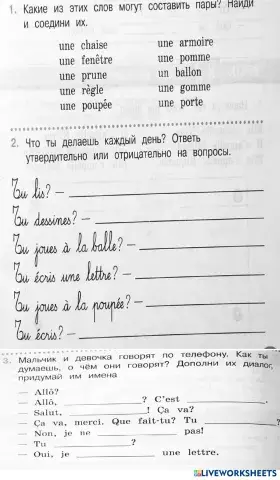 1. Какие из этих слов могут составить пары? Найди
и соедини их.
une chaise une armoire
une fenêtre une pomme
une prune un ballon
une règle une gomme
une poupée une porte
2. Что ты делаешь каждый день? Ответь
утвердительно или отрицательно на вопросы.
Tu lis? —
Tu dessines? —
Tu joues à la balle? —
Tu écris une lettre? —
Tu joues à la poupée? —
Tu écris? —
3. Мальчик и девочка говорят по телефону. Как ты
думаешь, о чём они говорят? Дополни их диалог,
придумай им имена
— Allô?
— Allô, ? C'est .
— Salut, ! Ça va?
— Ça va, merci. Que fait-tu? Tu ?
— Non, je ne pas!
— Tu ?
— Oui, je une lettre.
LIVEWORKSHEETS